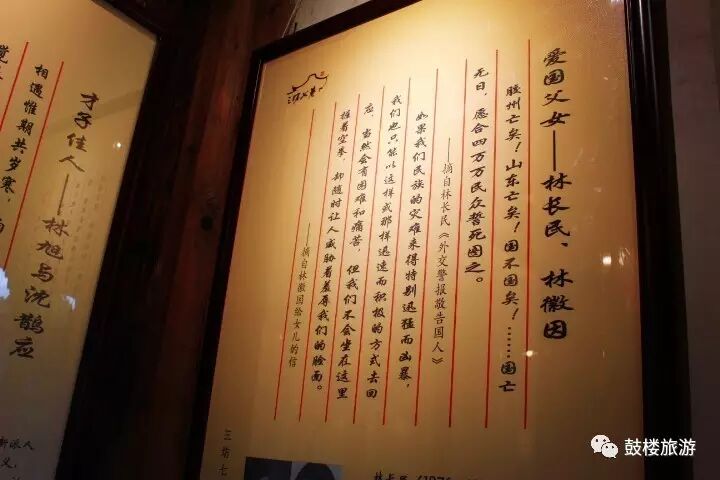 爱国父女——林长民、林徽因
胶州亡矣！山东亡矣！国不国矣！……国亡
无日，愿合四万万民众誓死图之。
——摘自林长民《外交警报敬告国人》
如果我们民族的灾难来得特别迅猛而凶暴，
我们也只能以这样或那样迅速而积极的方式去回
应。当然会有困难和痛苦，但我们不会坐在这里
握着空拳，却随时让人威胁着羞辱我们的脸面。
——摘自林徽因给女儿的信
三坊七
林长民
才子佳人——林旭与沈鹊应
相遇惟期共岁寒，
新派人
鼓楼旅游